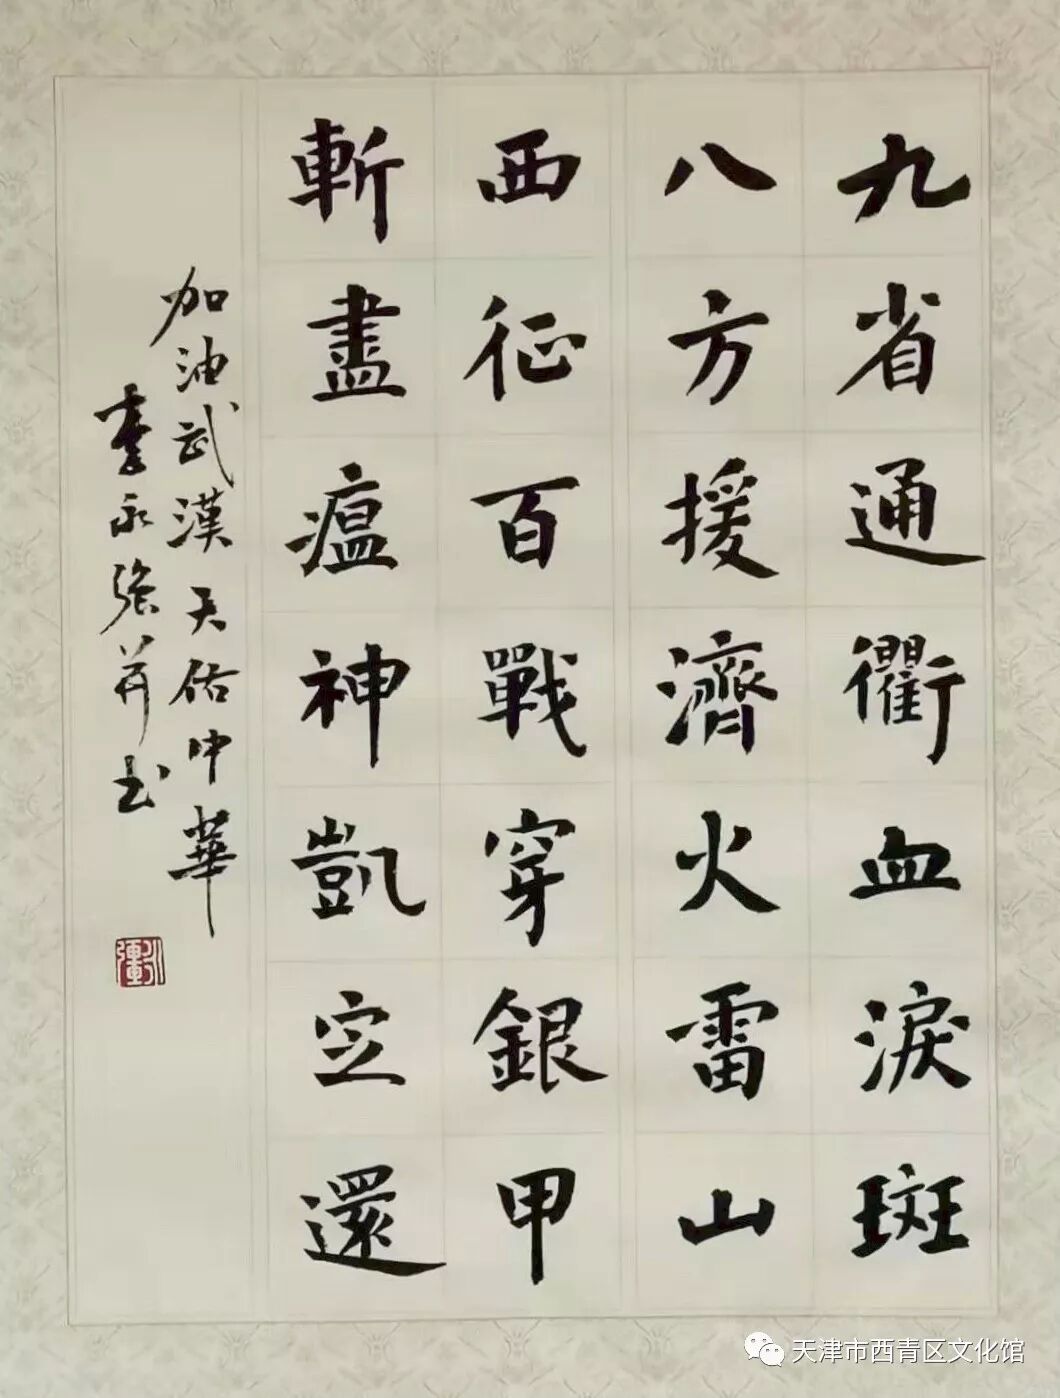 九省通衢血淚斑
八方援濟火雷山
西征百戰穿銀甲
斬盡瘟神凱定還
加油武漢天佑中華
李永强并书
永強
天津市西青区文化馆